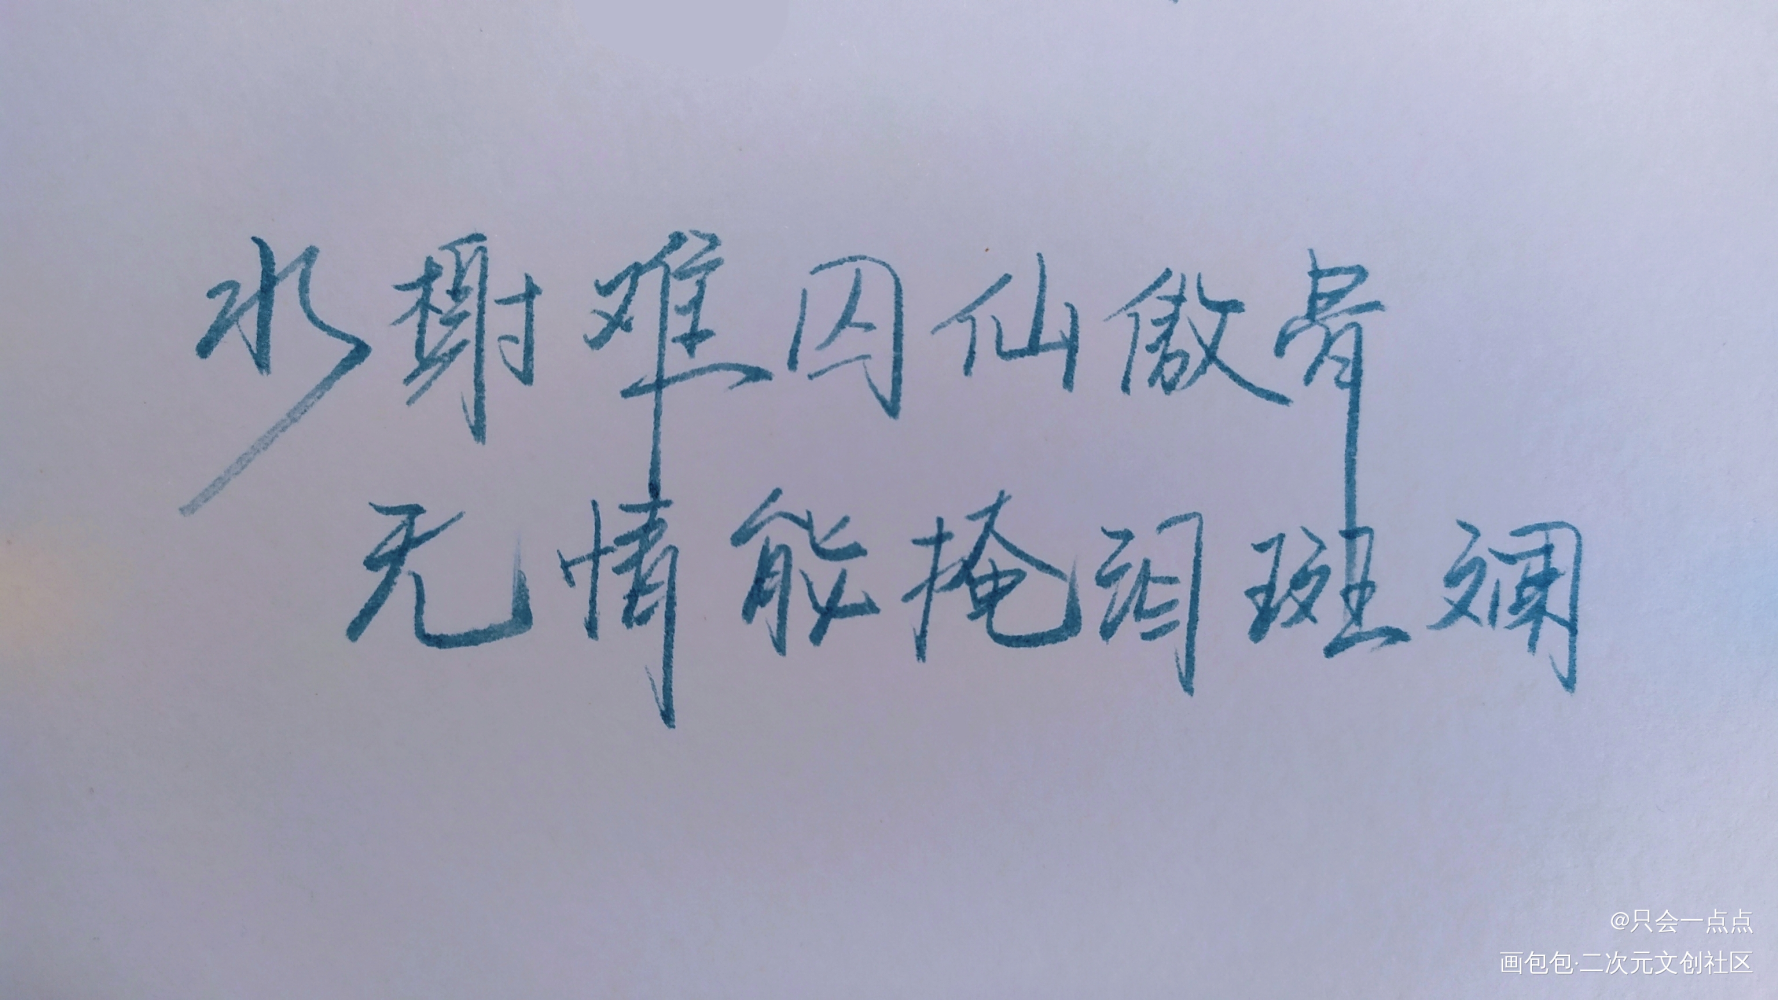 水榭难囚仙傲骨
无情能掩泪斑斓
@只会一点点
画包包·二次元文创社区